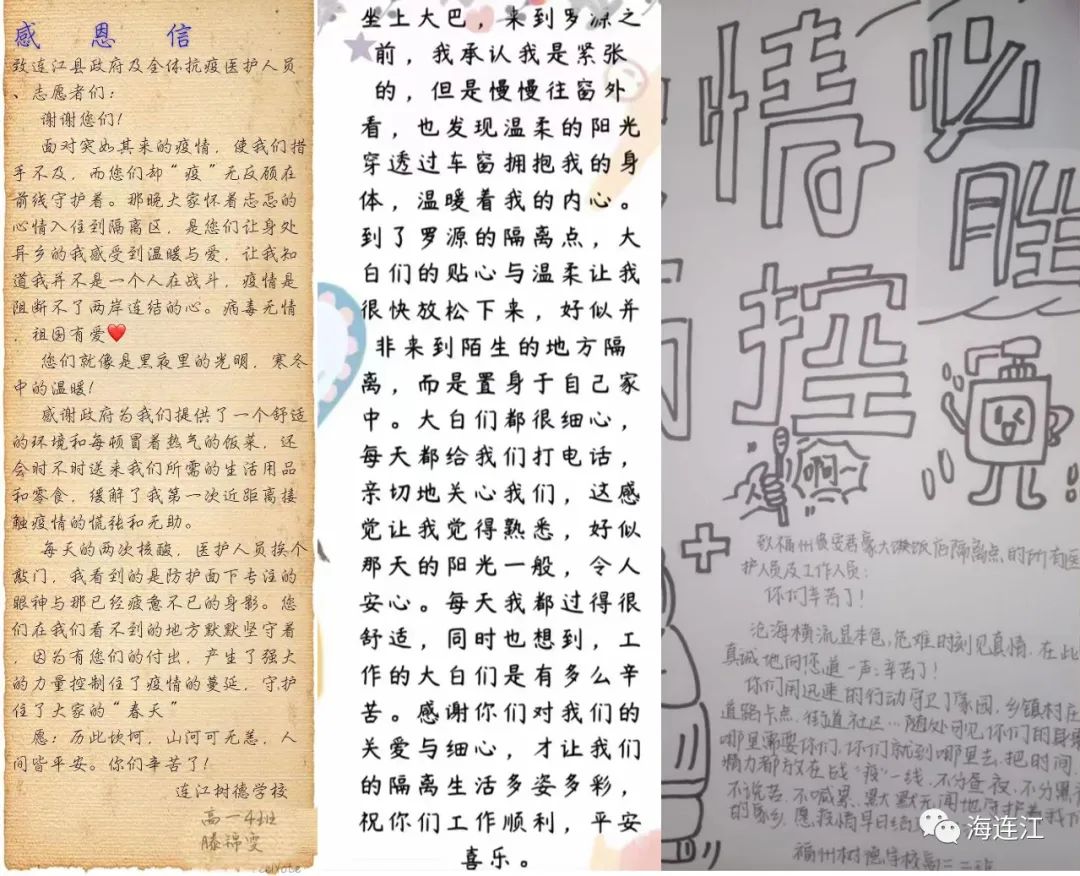 感 恩 信
致连江县政府及全体抗疫医护人员
、志愿者们：
谢谢您们！
面对突如其来的疫情，使我们措
手不及，而您们却“疫”无反顾在
前线守护着。那晚大家怀着忐忑的
心情入住到隔离区，是您们让身处
异乡的我感受到温暖与爱，让我知
道我并不是一个人在战斗，疫情是
阻断不了两岸连结的心。病毒无情
，祖国有爱❤️
您们就像是黑夜里的光明，寒冬
中的温暖！
感谢政府为我们提供了一个舒适
的环境和每顿冒着热气的饭菜，还
会时不时送来我们所需的生活用品
和零食，缓解了我第一次近距离接
触疫情的慌张和无助。
每天的两次核酸，医护人员挨个
敲门，我看到的是防护面下专注的
眼神与那已经疲惫不已的身影。您
们在我们看不到的地方默默坚守着
，因为有您们的付出，产生了强大
的力量控制住了疫情的蔓延，守护
住了大家的“春天”
愿：历此坎坷，山河可无恙，人
间皆平安。你们辛苦了！
连江树德学校
高一4班
滕锦雯
坐上大巴，来到罗源之
前，我承认我是紧张
的，但是慢慢往窗外
看，也发现温柔的阳光
穿透过车窗拥抱我的身
体，温暖着我的内心。
到了罗源的隔离点，大
白们的贴心与温柔让我
很快放松下来，好似并
非来到陌生的地方隔
离，而是置身于自己家
中。大白们都很细心，
每天都给我们打电话，
亲切地关心我们，这感
觉让我觉得熟悉，好似
那天的阳光一般，令人
安心。每天我都过得很
舒适，同时也想到，工
作的大白们是有多么辛
苦。感谢你们对我们的
关爱与细心，才让我们
的隔离生活多姿多彩，
祝你们工作顺利，平安
喜乐。
情 必
胜
控
啊~
致福州贵安君豪大饭店隔离点的所有医
护人员及工作人员：
你们辛苦了！
沧海横流显本色，危难时刻见真情，在此
真诚地向您道一声：辛苦了！
你们用迅速的行动守卫了家园，乡镇村庄
道路卡点，街道社区…随处可见你们的身影
哪里需要你们，你们就到哪里去，把时间、
精力都放在战“疫”一线，不分昼夜，不分黑
不说苦，不喊累，默默无闻地守护着我们
的家乡，愿疫情早日结
福州树德学校高二二班
海连江